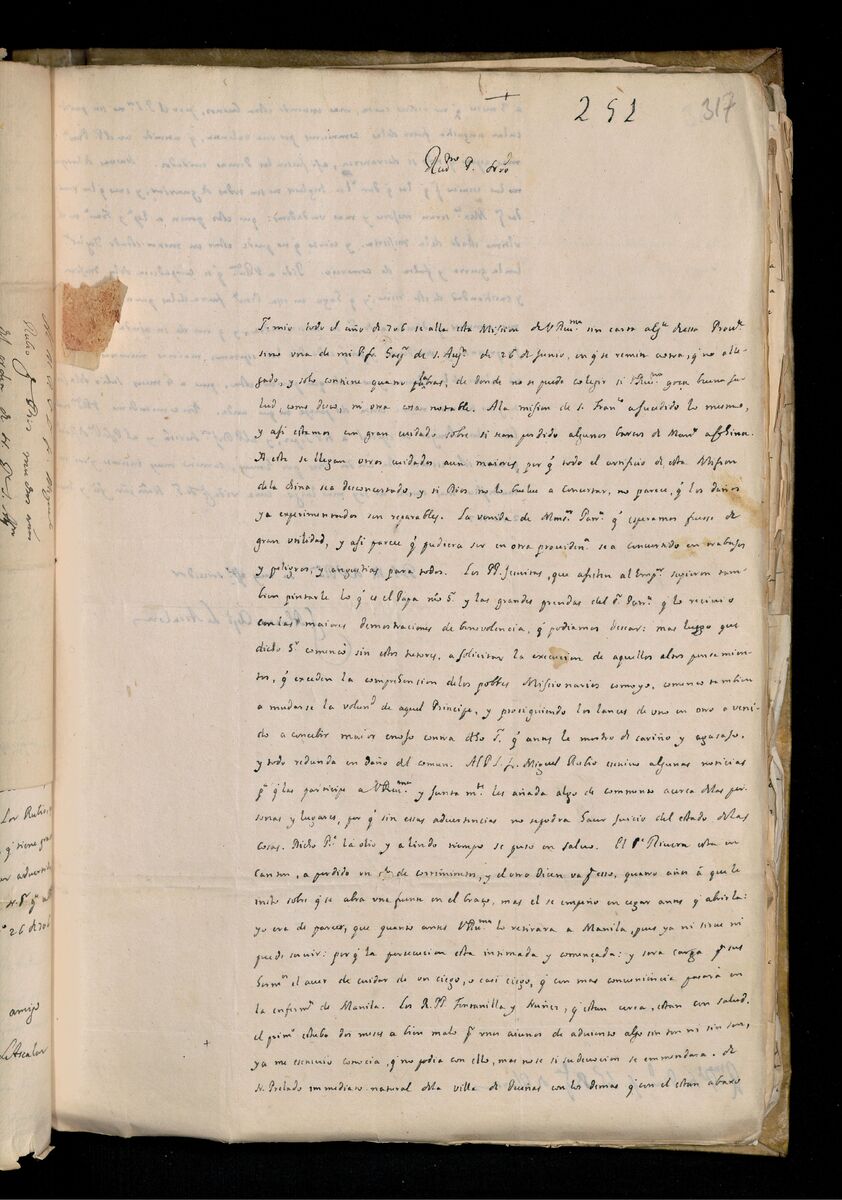 +
251
317
Rmo. P. Provl
P. mio todo el año de 706 se alla esta Mission de V Rma. sin carta algª dessa Provª
sino una de mi P. fr. Gasp. de S. Augn de 26 de Junio, en q̃ se remite a otra, q̃ no alle-
gado, y solo contiene quatro palabras, de donde no se puede colegir si V Rma. goza buena sa-
lud, como deseo, ni otra cosa notable. A la mission de S. Franco a sucedido lo mesmo,
y asi estamos con gran cuidado sobre si sean perdido algunos barcos de Manª a esta China.
A este se llegan otros cuidados aun maiores, por q̃ todo el artificio de esta Mission
de la China se a desconcertado, y si Dios no lo buelve a concertar, no parece, q̃ los daños
ya experimentados son reparables. La venida de Monsr. Parca q̃ esperamos fuesse de
gran utilidad, y asi parece q̃ pudiera ser en otra providena se a convertido en trabajos
y peligros, y angustias para todos. Los PP. Jesuitas, que asisten al Empr. supieron tam-
bien pintarle lo q̃ es el Papa nro Sr. y las grandes prendas del Sr. Parca q̃ lo recivio
con las maiores demostraciones de benevolencia, q̃ podiamos desear: mas luego que
dicho Sr comenzò sin estos tutores, a solicitar la execucion de aquellos altos pensamien-
tos, q̃ exceden la comprehension de los pobres Missionarios como yo, comenzo tambien
a mudarse la volund de aquel Principe, y prosiguiendo los lances de uno en otro a veni-
do a concebir maior enojo contra dicho Sr. q̃ antes le mostro de cariño y agasajo,
y todo redunda en daño del comun. Al P. L. fr. Miguel Rubio escrivo algunas noticias
pª q̃ las participe a V Rma. y juntamte les añada algo de comento acerca de las per-
sonas y lugares, por q̃ sin essas advertencias no se podra hacer juicio del estado de las
cosas. Dicho Pe. la olio y a lindo tiempo se puso en salvo. El Pe Rivera esta en
Canton, a perdido un ojo de corrimientos, y el otro dicen va a esso, quatro años â que le
insto sobre q̃ se abra una fuente en el braço, mas el se empeño en cegar antes q̃ abrirla:
yo era de parecer, que quanto antes V Rma. lo retirara a Manila, pues ya ni sirve ni
puede servir: por q̃ la persecucion esta intimada y començada: y sera carga pª sus
Hermos el aver de cuidar de un ciego, o casi ciego, q̃ con mas conveniencia passarà en
la enfermª de Manila. Los R. PP. Fontanilla y Nuñez, q̃ estan cerca, estan con salud.
el primo estubo dos meses a bien malo pr unos aiunos de adviento algo sin ton ni sin son,
ya me escrivio conocia, q̃ no podia con ello, mas no se si su devocion se emmendara. de
N. Prelado immediato natural de la villa de Dueñas con los demas q̃ con el estan abaxo